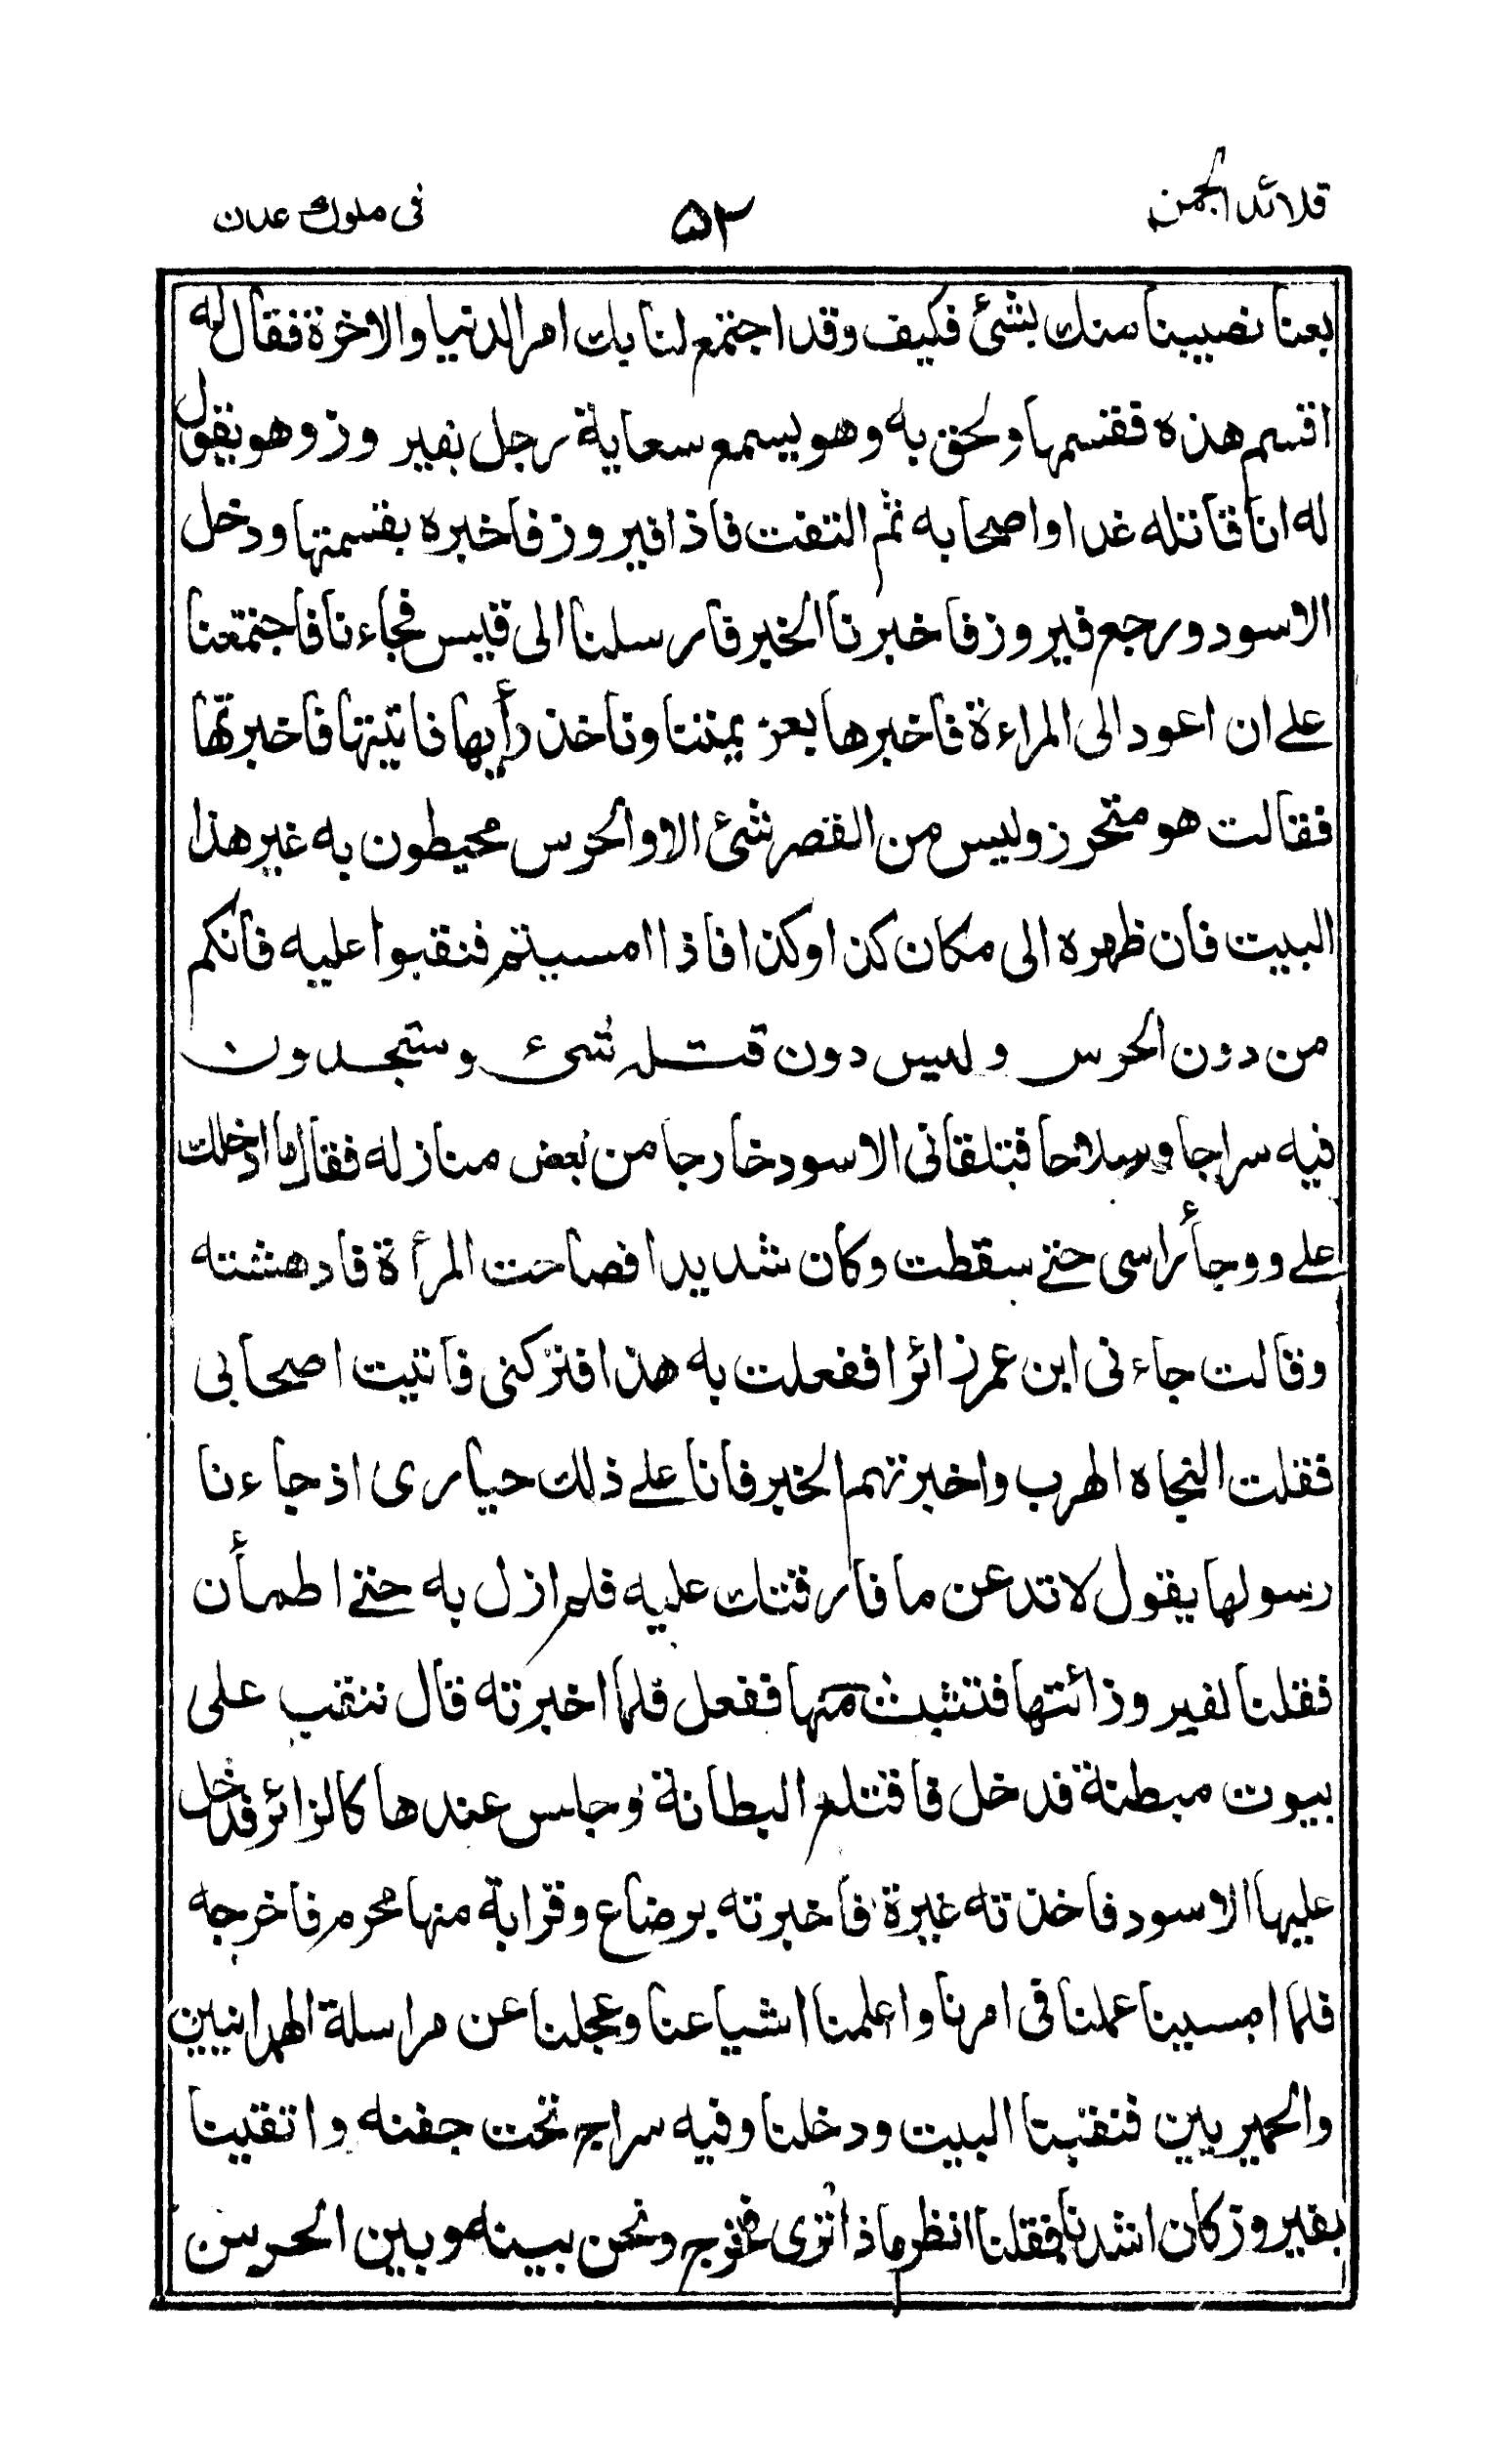 قلائد الجمن
۵۲
فى ملوك عدن
بعنا نصيبنا منك بشئ فكيف وقد اجتمع لنا بك امر الدنيا والاخرة فقال له
اقسم هذه فقسمها ولحق به وهو يسمع سعاية رجل بفيروز وهو يقول
له انا قاتله غدا واصحابه ثم التفت فاذا فيروز فاخبره بقسمتها ودخل
الاسود ورجع فيروز فاخبرنا الخبر فارسلنا الى قيس فجاءنا فاجتمعنا
على ان اعود الى المراءة فاخبرها بعزيمتنا وناخذ رأيها فاتيتها فاخبرتها
فقالت هو متحرز وليس من القصر شئ الا والحرس محيطون به غير هذا
البيت فان ظهره الى مكان كذا وكذا فاذا امسيتم فنقبوا عليه فانكم
من دون الحرس وليس دون قتله شئ وستجدون
فيه سراجا وسلاحا فتلقانى الاسود خارجا من بعض منازله فقال ما ادخلك
على ووجأ راسى حتى سقطت وكان شديدا فصاحت المرأة فادهشته
وقالت جاءنى ابن عمى زائرا ففعلت به هذا فتركنى فاتيت اصحابى
فقلت النجاه الهرب واخبرتهم الخبر فانا على ذلك حيارى اذ جاءنا
رسولها يقول لا تدعن ما فارقتك عليه فلم ازل به حتى اطمأن
فقلنا لفيروز ائتها فتثبت منها ففعل فلما اخبرته قال ننقب على
بيوت مبطنة فدخل فاقتلع البطانة وجلس عندها كالزائر فدخل
عليها الاسود فاخذته غيرة فاخبرته برضاع وقرابة منها محرم فاخرجه
فلما امسينا عملنا فى امرنا واعلمنا اشياعنا وعجلنا عن مراسلة الهمدانيين
والحميريين فنقبنا البيت ودخلنا وفيه سراج تحت جفنه واتقينا
بفيروز كان اشدنا فقلنا انظر ماذا ترى فخرج ونحن بينه وبين الحرس